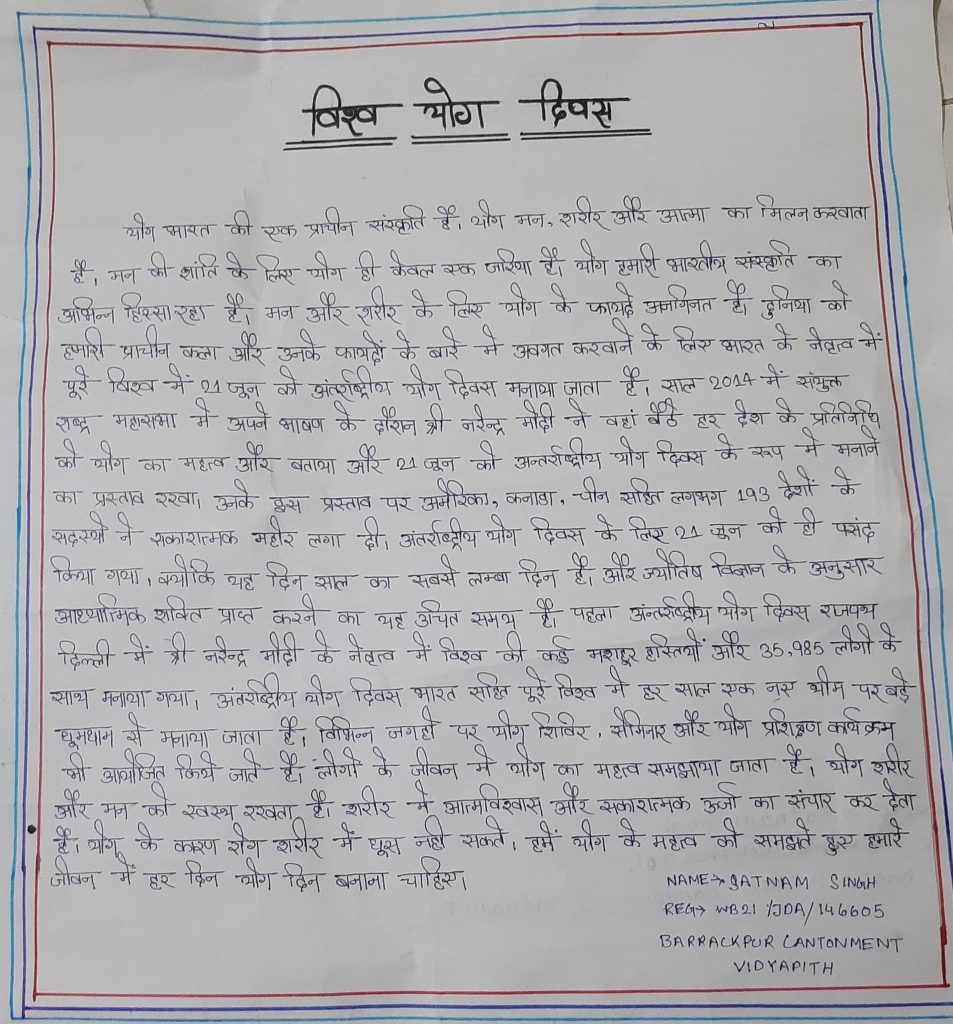 विश्व योग दिवस
योग भारत की एक प्राचीन संस्कृति है, योग मन, शरीर और आत्मा का मिलन करवाता
है, मन की शांति के लिए योग ही केवल एक जरिया है। योग हमारी भारतीय संस्कृति का
अभिन्न हिस्सा रहा है, मन और शरीर के लिए योग के फायदे अनगिनत है, दुनिया को
हमारी प्राचीन कला और उनके फायदों के बारे में अवगत करवाने के लिए भारत के नेतृत्व में
पूरे विश्व में 21 जून को अंतर्राष्ट्रीय योग दिवस मनाया जाता है, साल 2014 में संयुक्त
राष्ट्र महासभा में अपने भाषण के दौरान श्री नरेन्द्र मोदी ने वहां बैठे हर देश के प्रतिनिधि
को योग का महत्व और बताया और 21 जून को अन्तर्राष्ट्रीय योग दिवस के रूप में मनाने
का प्रस्ताव रखा, उनके इस प्रस्ताव पर अमेरिका, कनाडा, चीन सहित लगभग 193 देशों के
सदस्यों ने सकारात्मक मोहर लगा दी, अंतर्राष्ट्रीय योग दिवस के लिए 21 जून को ही पसंद
किया गया, क्योंकि यह दिन साल का सबसे लम्बा दिन है, और ज्योतिष विज्ञान के अनुसार
आध्यात्मिक शक्ति प्राप्त करने का यह उचित समय है, पहला अंन्तर्राष्ट्रीय योग दिवस राजपथ
दिल्ली में श्री नरेन्द्र मोदी के नेतृत्व में विश्व की कई मशहूर हस्तियों और 35,985 लोगों के
साथ मनाया गया, अंतर्राष्ट्रीय योग दिवस भारत सहित पूरे विश्व में हर साल एक नए थीम पर बड़े
धूमधाम से मनाया जाता है, विभिन्न जगहों पर योग शिविर, सेमिनार और योग प्रशिक्षण कार्यक्रम
भी आयोजित किये जाते है, लोगों के जीवन में योग का महत्व समझाया जाता है, योग शरीर
और मन को स्वस्थ रखता है। शरीर में आत्मविश्वास और सकारात्मक ऊर्जा का संचार कर देता
है, योग के कारण रोग शरीर में घूस नही सकते, हमें योग के महत्व को समझते हुए हमारे
जीवन में हर दिन योग दिन बनाना चाहिए,
NAME→ SATNAM SINGH
REG→ WB21 /JDA/146605
BARRACKPUR CANTONMENT
VIDYAPITH